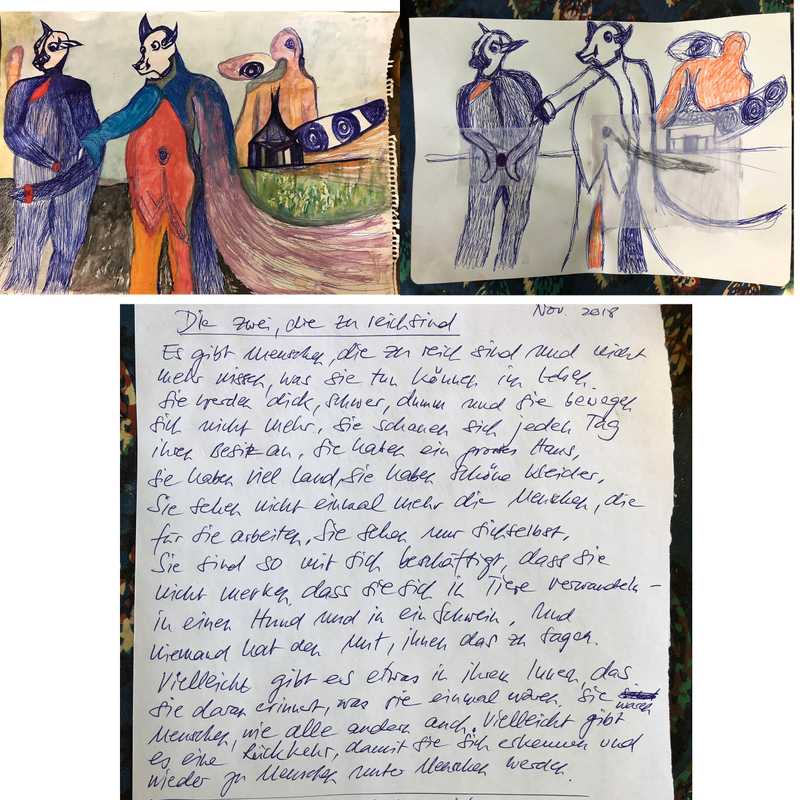 Die zwei, die zu reich sind
Nov. 2018
Es gibt Menschen, die zu reich sind und nicht
mehr wissen, was sie tun können im Leben.
Sie werden dick, schwer, dumm und sie bewegen
sich nicht mehr, sie schauen sich jeden Tag
ihren Besitz an, sie haben ein grosses Haus,
sie haben viel Land, sie haben schöne Kleider,
Sie sehen nicht einmal mehr die Menschen, die
für sie arbeiten, sie sehen nur sich selbst,
Sie sind so mit sich beschäftigt, dass sie
nicht merken, dass sie sich in Tiere verwandeln –
in einen Hund und in ein Schwein, und
niemand hat den Mut, ihnen das zu sagen.
Vielleicht gibt es etwas in ihren Innen, das
sie daran erinnert, was sie einmal waren. Sie waren
Menschen, wie alle andern auch. Vielleicht gibt
es eine Rückkehr, damit sie sich erkennen und
wieder zu Menschen unter Menschen werden.